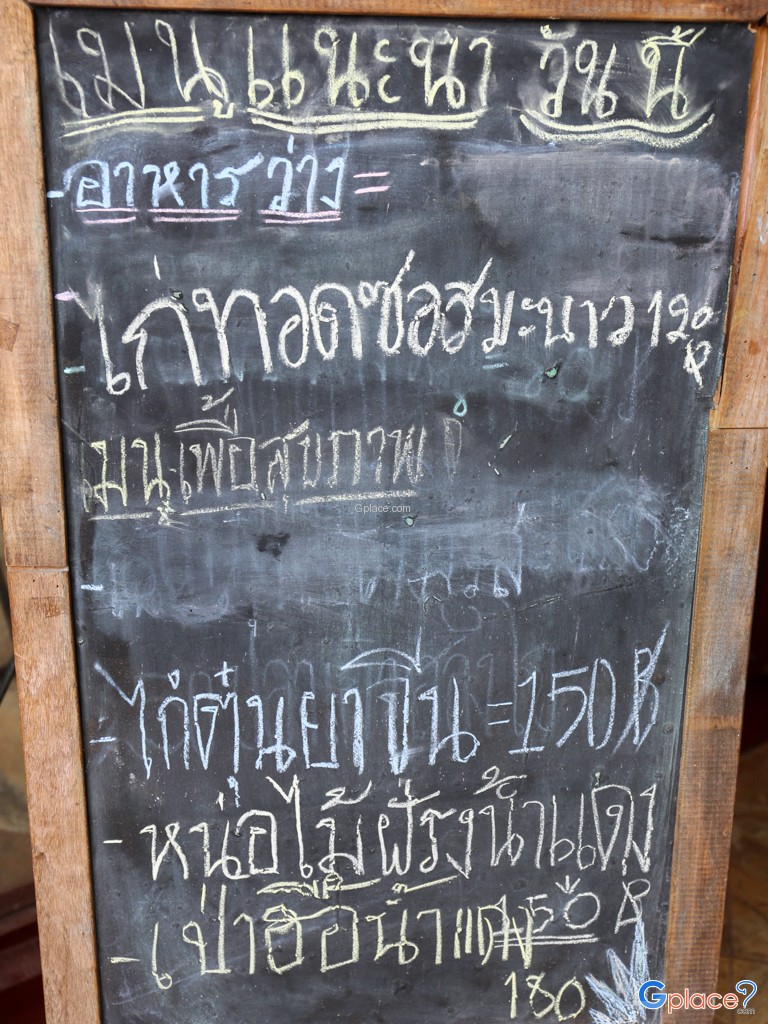 เมนู แนะนำ วันนี้
- อาหารว่าง =
- ไก่ทอดซอสมะนาว 120 ฿
เมนูเพื่อสุขภาพ
Gplace.com
- ไก่ตุ๋นยาจีน = 150 ฿
- หน่อไม้ฝรั่งน้ำแดง
150 ฿
- เป่าฮื้อน้ำแดง
180
Gplace?.com